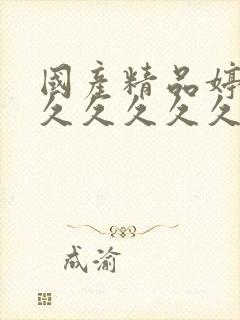 國產精品婷
久久久久久
成渝